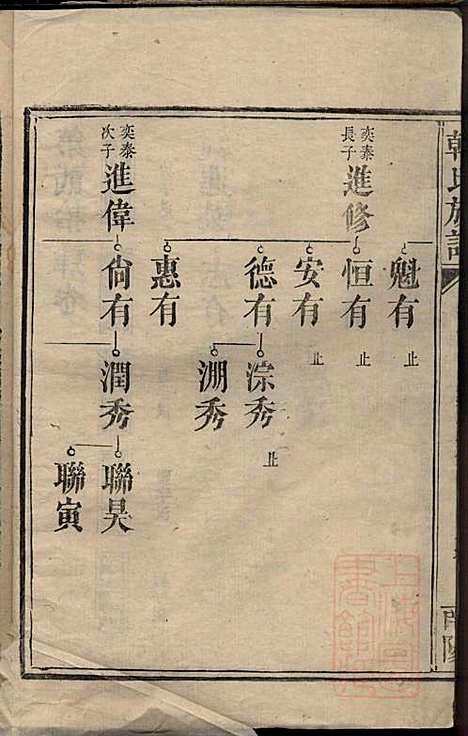 韓氏族譜
奕泰
長子
進修
魁有
止
恒有
止
安有
止
德有
淙秀
止
淜秀
惠有
奕泰
次子
進偉
尙有
潤秀
聯昊
聯寅
南陽